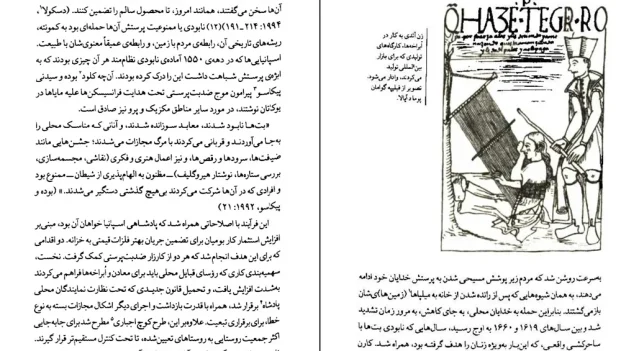 آن‌ها سخن می‌گفتند، همانند امروز، تا محصول سالم را تضمین کنند. (دسکولا،
۱۹۹۴: ۲۱۴ـ۱۹۱)(۱۲) نابودی یا ممنوعیت پرستش آن‌ها حمله‌ای بود به کمونته،
ریشه‌های تاریخی آن، رابطه‌ی مردم با زمین، و رابطه‌ی عمیقاً معنوی‌شان با طبیعت.
اسپانیایی‌ها که در دهه‌ی ۱۵۵۰ آماده‌ی نابودی نظام‌مند هر آن چیزی بودند که به
ابژه‌ی پرستش شباهت داشت این را درک کرده بودند. آن‌چه کلود بوده و سیدنی
پیکاسو پیرامون موج ضدبت‌پرستی تحت هدایت فرانسیسکن‌ها علیه مایاها در
یوکاتان نوشتند، در مورد سایر مناطق مکزیک و پرو نیز صادق است.
«بت‌ها نابود شدند، معابد سوزانده شدند، و آنانی که مناسک محلی را
به‌جا می‌آوردند و قربانی می‌کردند با مرگ مجازات می‌شدند؛ جشن‌هایی مانند
ضیافت‌ها، سرودها و رقص‌ها، و نیز اعمال هنری و فکری (نقاشی، مجسمه‌سازی،
بررسی ستاره‌ها، نوشتار هیروگلیف) ـ مظنون به الهام‌پذیری از شیطان ـ ممنوع بود
و افرادی که در آن‌ها شرکت می‌کردند بی‌هیچ گذشتی دستگیر می‌شدند.» (بوده و
پیکاسو، ۱۹۹۲: ۲۱)
این فرآیند با اصلاحاتی همراه شد که پادشاهی اسپانیا خواهان آن بود، مبنی‌بر
افزایش استثمار کار بومیان برای تضمین جریان بهتر فلزات قیمتی به خزانه. دو اقدامی
که برای این هدف انجام شد که هر دو از کارزار ضدبت‌پرستی کمک گرفت. نخست،
سهمیه‌بندی کاری که رؤسای قبایل محلی باید برای معادن و اُبراخه‌ها فراهم می‌کردند
به‌شدت افزایش یافت، و تحمیل قانون جدیدی که تحت نظارت نمایندگان محلی
پادشاه برقرار شد، همراه با قدرت بازداشت و اجرای دیگر اشکال مجازات بسته به نوع
خطا، برای برقراری تبعیت. علاوه‌بر این، طرح کوچ اجباری مطرح شد برای جابه‌جایی
اکثر جمعیت روستایی به روستاهای تعیین‌شده، تا تحت کنترل مستقیم‌تر قرار گیرند.
زن آندی به کار در
اُبراخه‌ها، کارگاه‌های
تولیدی که برای بازار
بین‌المللی تولید
می‌کردند، وادار می‌شود.
تصویر از فیلیپه گوامان
پوما د آیالا.
به‌سرعت روشن شد که مردم زیر پوشش مسیحی شدن به پرستش خدایان خود ادامه
می‌دهند، به همان شیوه‌هایی که پس از رانده شدن از خانه به میلپاها (زمین‌ها)ی‌شان
بازمی‌گشتند. بنابراین حمله به خدایان محلی، به جای کاهش، به مرور زمان تشدید
شد و بین سال‌های ۱۶۱۹ و ۱۶۶۰ به اوج رسید، سال‌هایی که نابودی بت‌ها با
ساحرکشی واقعی، که این‌بار به‌ویژه زنان را هدف گرفته بود، همراه شد. کارن